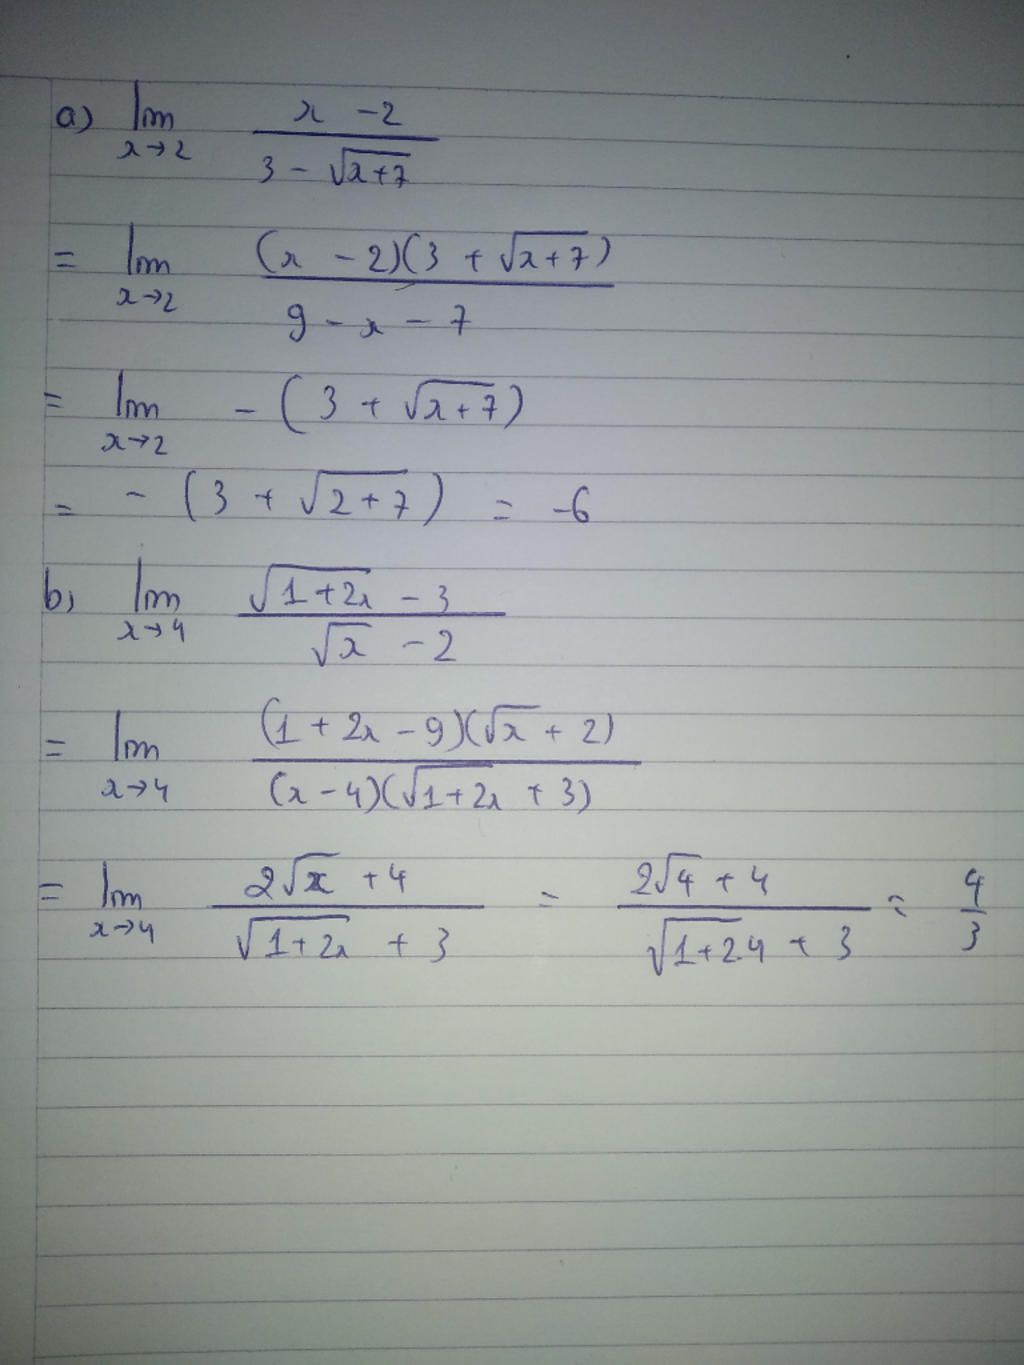 a) lim x→2 (x - 2)/(3 - √(x+7))
= lim x→2 ((x - 2)(3 + √(x+7)))/(9 - x - 7)
= lim x→2 - (3 + √(x+7))
= - (3 + √(2+7)) = -6
b) lim x→4 (√(1+2x) - 3)/(√x - 2)
= lim x→4 ((1 + 2x - 9)(√x + 2))/((x - 4)(√(1+2x) + 3))
= lim x→4 (2√x + 4)/(√(1+2x) + 3) = (2√4 + 4)/(√(1+2.4) + 3) = 4/3